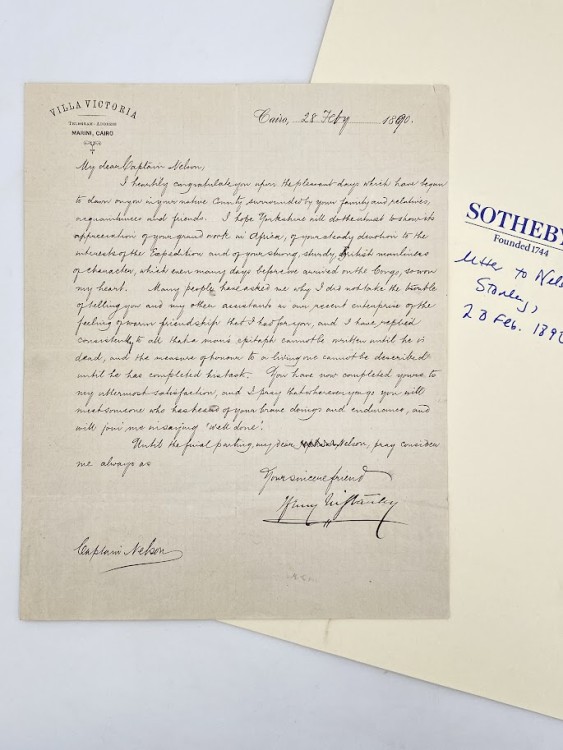 VILLA VICTORIA
TELEGRAM-ADDRESS
MARINI, CAIRO
Cairo, 28 Feby 1890.
My dear Captain Nelson,
I heartily congratulate you upon the pleasant days which have begun
to dawn on you in your native County surrounded by your family and relatives,
acquaintances and friends. I hope Yorkshire will do the utmost to show its
appreciation of your grand work in Africa, of your steady devotion to the
interests of the Expedition and of your strong, sturdy, British manliness
of character, which even many days before we arrived on the Congo, so won
my heart. Many people have asked me why I did not take the trouble
of telling you and my other assistants in our recent enterprise of the
feeling of warm friendship that I had for you, and I have replied
consistently to all that a man's epitaph cannot be written until he is
dead, and the measure of honour to a living one cannot be described
until he has completed his task. You have now completed yours to
my uttermost satisfaction, and I pray that wherever you go you will
meet someone who has heard of your brave doings and endurance, and
will join me in saying 'Well done'.
Until the final parting, my dear Nelson, pray consider
me always as
Your sincere friend
Henry M Stanley
Captain Nelson
SOTHEBY'
Founded 1744
letter to Nels
Stanley,
28 Feb. 1890